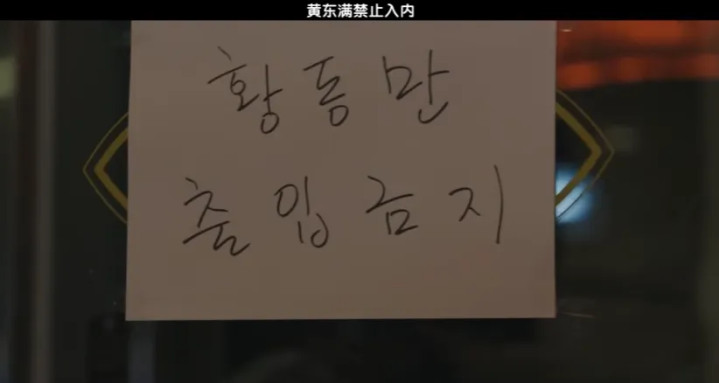 黄东满禁止入内
황동만
출입금지